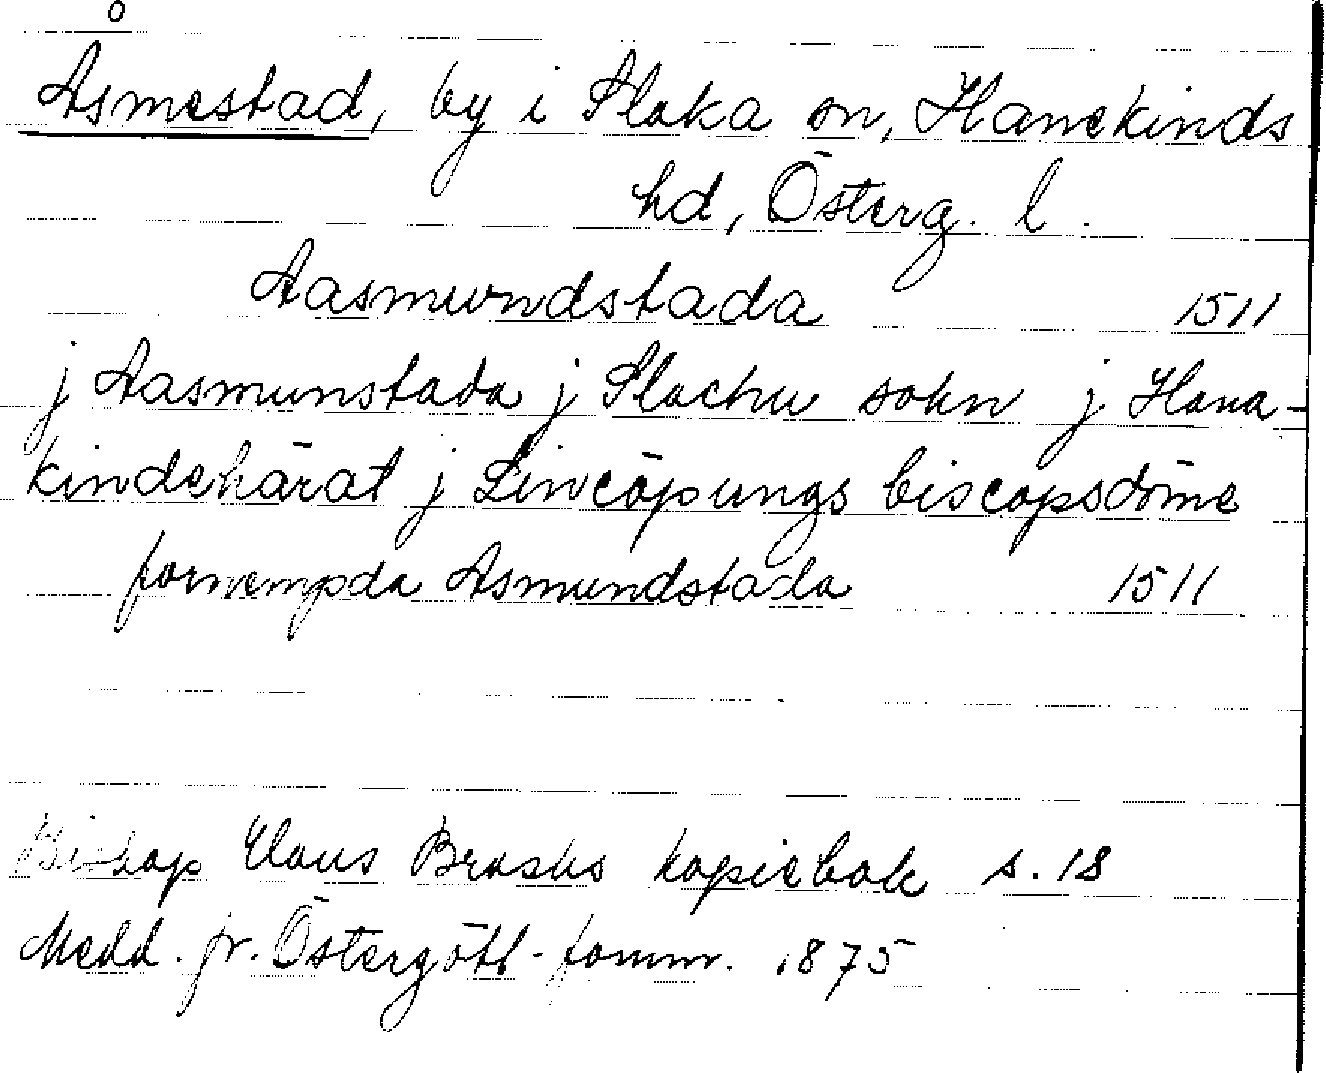 Åsmestad, by i Slaka sn, Hanekinds
hd, Österg. l.
Aasmundstada 1511
j Aasmunstada j Slachu sokn j Hana-
kindehärat j Lincöpungs biscopsdöme
fornempda Asmundstada 1511
Biskop Claus Brasks kopiebok s. 18
Medd. fr. Östergötl. fornm. 1875